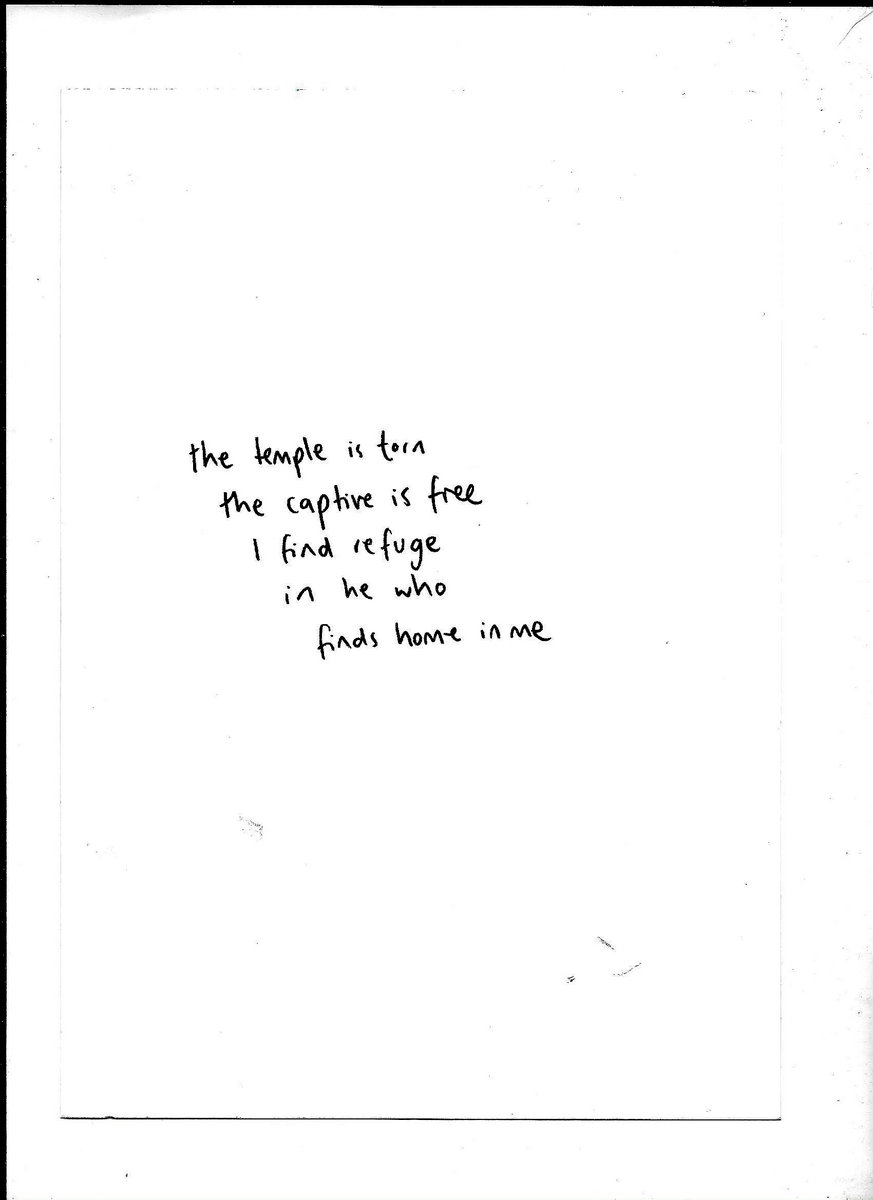 the temple is torn
the captive is free
I find refuge
in he who
finds home in me